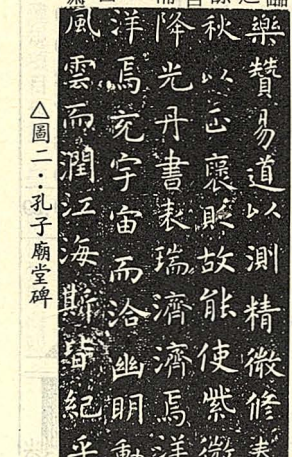 樂贊易道以測精微修春
秋以正褒貶故能使紫微
降光丹書表瑞濟濟焉洋
洋焉充宇宙而洽幽明動
風雲而潤江海斯皆紀乎
△圖二：孔子廟堂碑